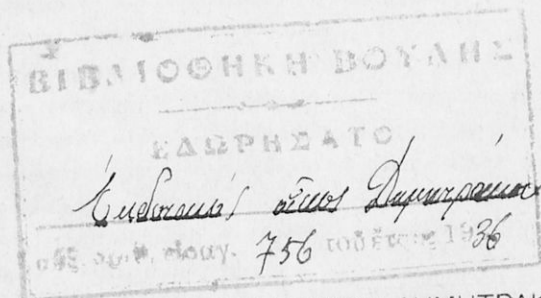 ΒΙΒΛΙΟΘΗΚΗ ΒΟΥΛΗΣ
ΕΔΩΡΗΣΑΤΟ
Ἐκδοτικὸς οἶκος Δημητράκου
αὔξ. ἀριθ. εἰσαγ. 756 τοῦ ἔτους 1936